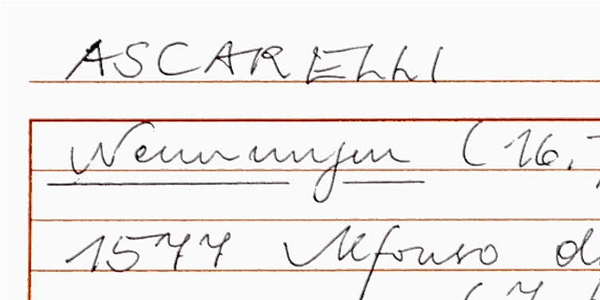 ASCARELLI
Nennungen (16.
1577 Alfonso d